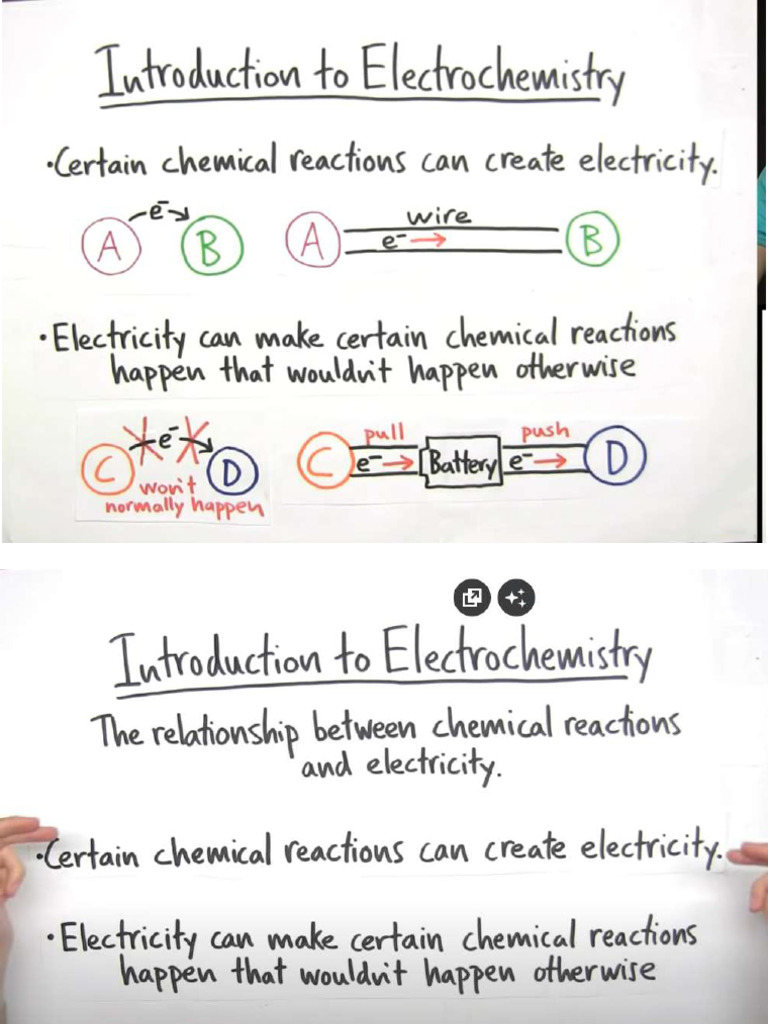 Introduction to Electrochemistry
•Certain chemical reactions can create electricity.
A e⁻ B A wire e⁻ B
•Electricity can make certain chemical reactions
happen that wouldn't happen otherwise
C e⁻ D won't
normally happen
C pull e⁻ Battery push e⁻ D
Introduction to Electrochemistry
The relationship between chemical reactions
and electricity.
•Certain chemical reactions can create electricity.
•Electricity can make certain chemical reactions
happen that wouldn't happen otherwise